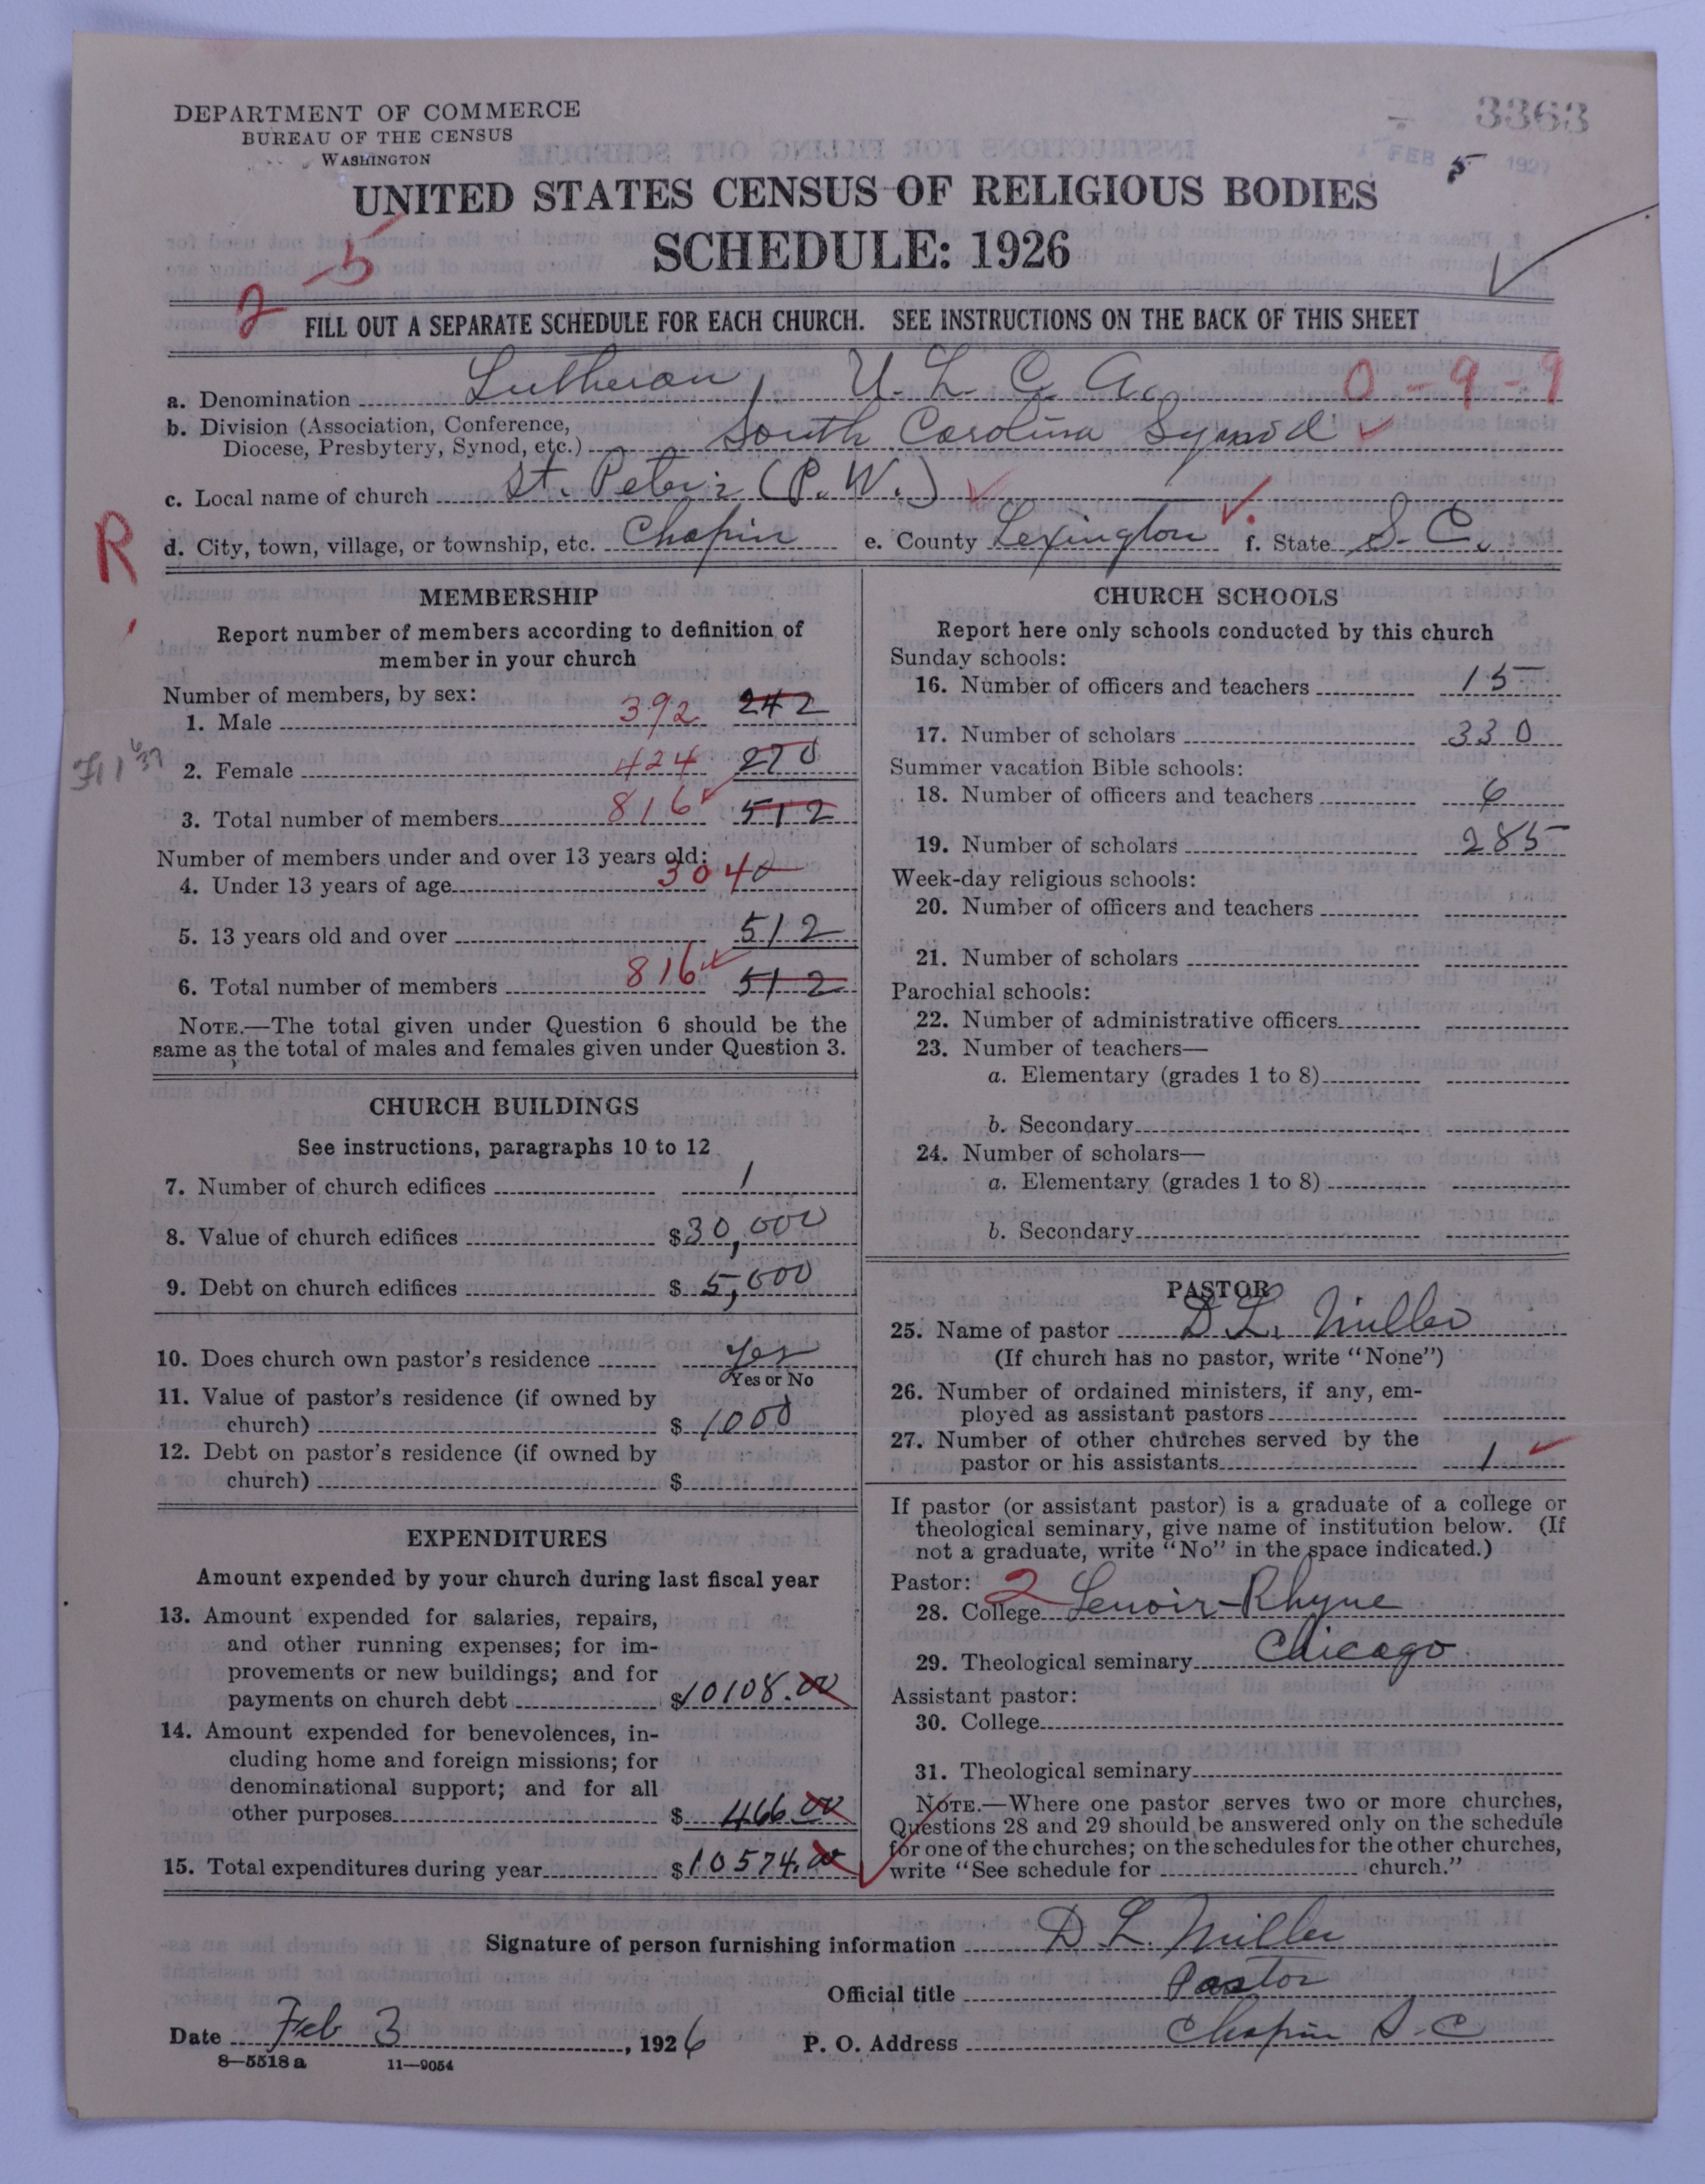 DEPARTMENT OF COMMERCE
BUREAU OF THE CENSUS
WASHINGTON
3363
FEB 5 1927
UNITED STATES CENSUS OF RELIGIOUS BODIES
SCHEDULE: 1926
2 - 5
FILL OUT A SEPARATE SCHEDULE FOR EACH CHURCH. SEE INSTRUCTIONS ON THE BACK OF THIS SHEET
a. Denomination Lutheran, U. L. C. A. 0-9-9
b. Division (Association, Conference,
Diocese, Presbytery, Synod, etc.) South Carolina Synod
c. Local name of church St. Peter's (P. W.)
R
d. City, town, village, or township, etc. Chapin e. County Lexington f. State S. C.
MEMBERSHIP
Report number of members according to definition of
member in your church
Number of members, by sex:
1. Male 392 242
2. Female 424 270
3. Total number of members 816 512
Number of members under and over 13 years old:
4. Under 13 years of age 304 0
5. 13 years old and over 512
6. Total number of members 816 512
NOTE.—The total given under Question 6 should be the
same as the total of males and females given under Question 3.
CHURCH BUILDINGS
See instructions, paragraphs 10 to 12
7. Number of church edifices 1
8. Value of church edifices $30,000
9. Debt on church edifices $5,000
10. Does church own pastor's residence Yes
Yes or No
11. Value of pastor's residence (if owned by
church) $1000
12. Debt on pastor's residence (if owned by
church) $
EXPENDITURES
Amount expended by your church during last fiscal year
13. Amount expended for salaries, repairs,
and other running expenses; for im-
provements or new buildings; and for
payments on church debt $10108.00
14. Amount expended for benevolences, in-
cluding home and foreign missions; for
denominational support; and for all
other purposes $466.00
15. Total expenditures during year $10574.00
CHURCH SCHOOLS
Report here only schools conducted by this church
Sunday schools:
16. Number of officers and teachers 15
17. Number of scholars 330
Summer vacation Bible schools:
18. Number of officers and teachers 6
19. Number of scholars 285
Week-day religious schools:
20. Number of officers and teachers
21. Number of scholars
Parochial schools:
22. Number of administrative officers
23. Number of teachers—
a. Elementary (grades 1 to 8)
b. Secondary
24. Number of scholars—
a. Elementary (grades 1 to 8)
b. Secondary
PASTOR
25. Name of pastor D. L. Miller
(If church has no pastor, write "None")
26. Number of ordained ministers, if any, em-
ployed as assistant pastors
27. Number of other churches served by the
pastor or his assistants 1
If pastor (or assistant pastor) is a graduate of a college or
theological seminary, give name of institution below. (If
not a graduate, write "No" in the space indicated.)
Pastor: 2
28. College Lenoir-Rhyne
29. Theological seminary Chicago
Assistant pastor:
30. College
31. Theological seminary
NOTE.—Where one pastor serves two or more churches,
Questions 28 and 29 should be answered only on the schedule
for one of the churches; on the schedules for the other churches,
write "See schedule for church."
Signature of person furnishing information D L. Miller
Official title Pastor
Date Feb 3, 1926 P. O. Address Chapin S. C
8—5518a 11—9054